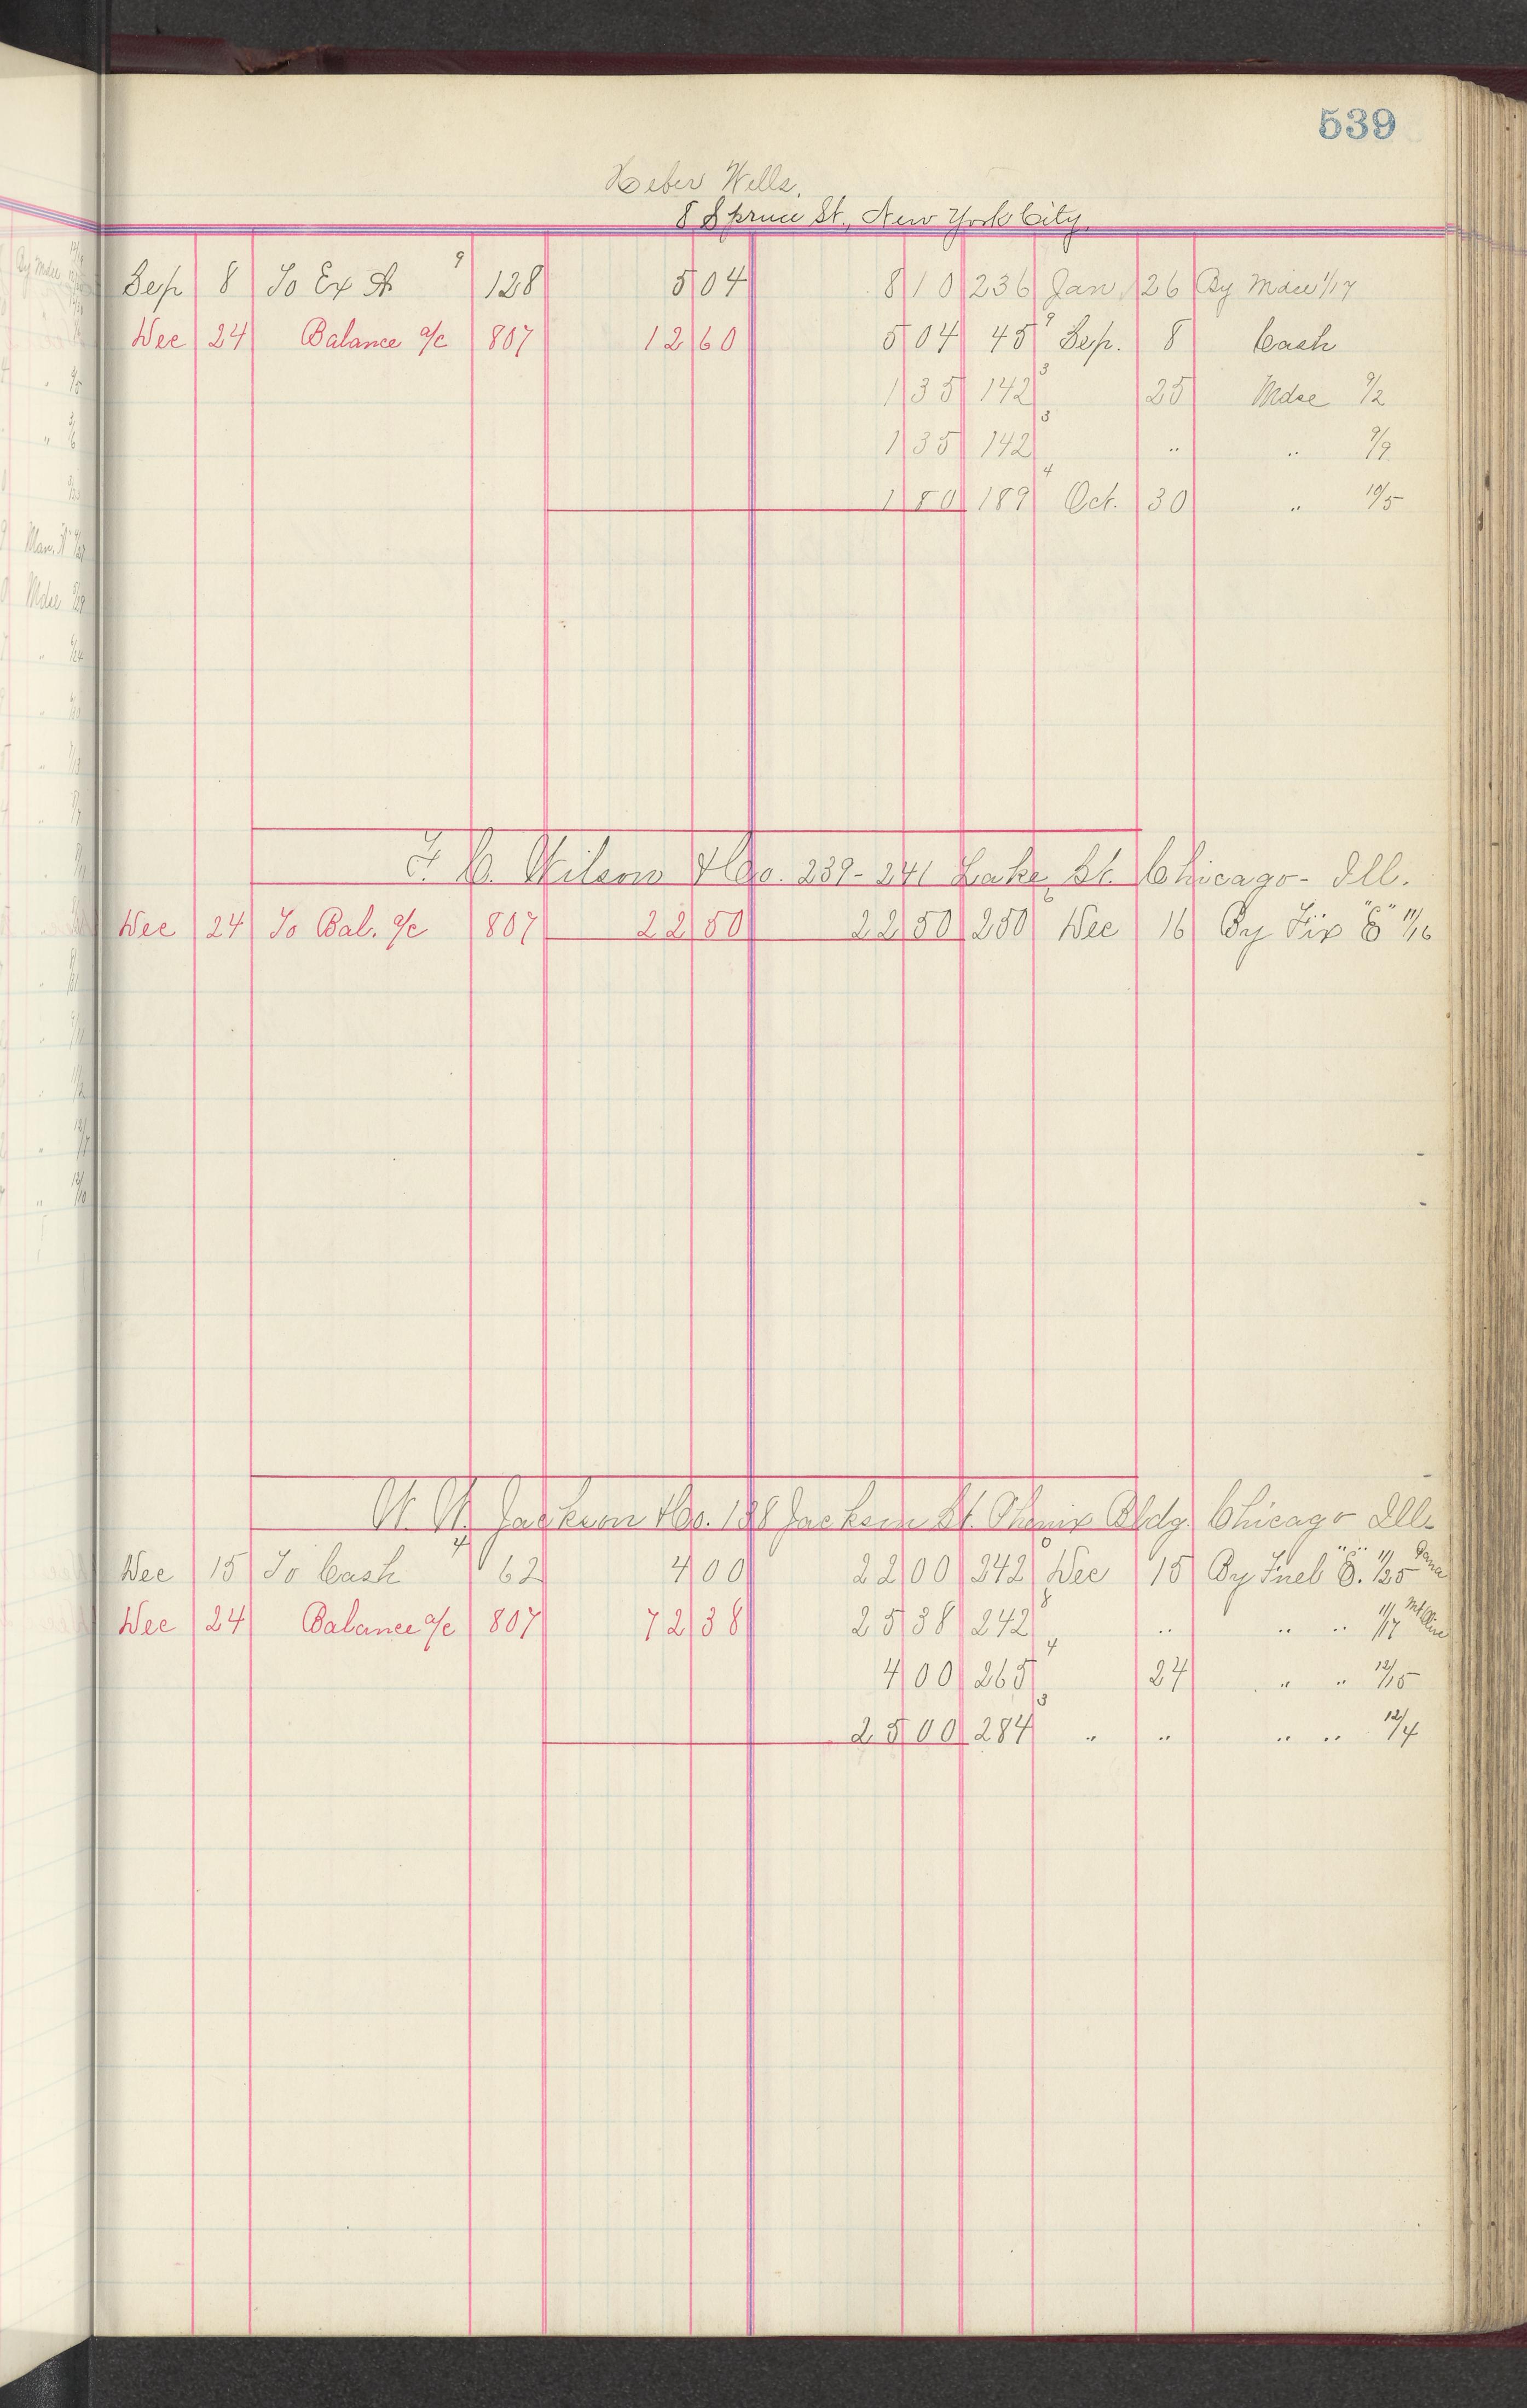 539
Heber Wells.
8 Spruce St., New York City.
Sep 8 To Ex A 9 128 5 04 8 10 236 Jan 26 By Mdse 1/17
Dec 24 Balance a/c 807 12 60 5 04 45 9 Sep. 8 Cash
1 35 142 3 25 Mdse 9/2
1 35 142 3 " " 9/9
1 80 189 4 Oct. 30 " 10/5
F. C. Wilson & Co. 239-241 Lake St. Chicago - Ill.
Dec 24 To Bal. a/c 807 22 50 22 50 250 6 Dec 16 By Fix "E" 11/16
W. W. Jackson & Co. 138 Jackson St. Phenix Bldg. Chicago Ill.
Dec 15 To Cash 4 62 4 00 22 00 242 0 Dec 15 By Fuel "E". 11/25
Dec 24 Balance a/c 807 72 38 25 38 242 8 " " " 11/17 Mt Olive
4 00 265 4 24 " " 12/15
25 00 284 3 " " " " 12/4
By Mdse
Man. N
Mdse